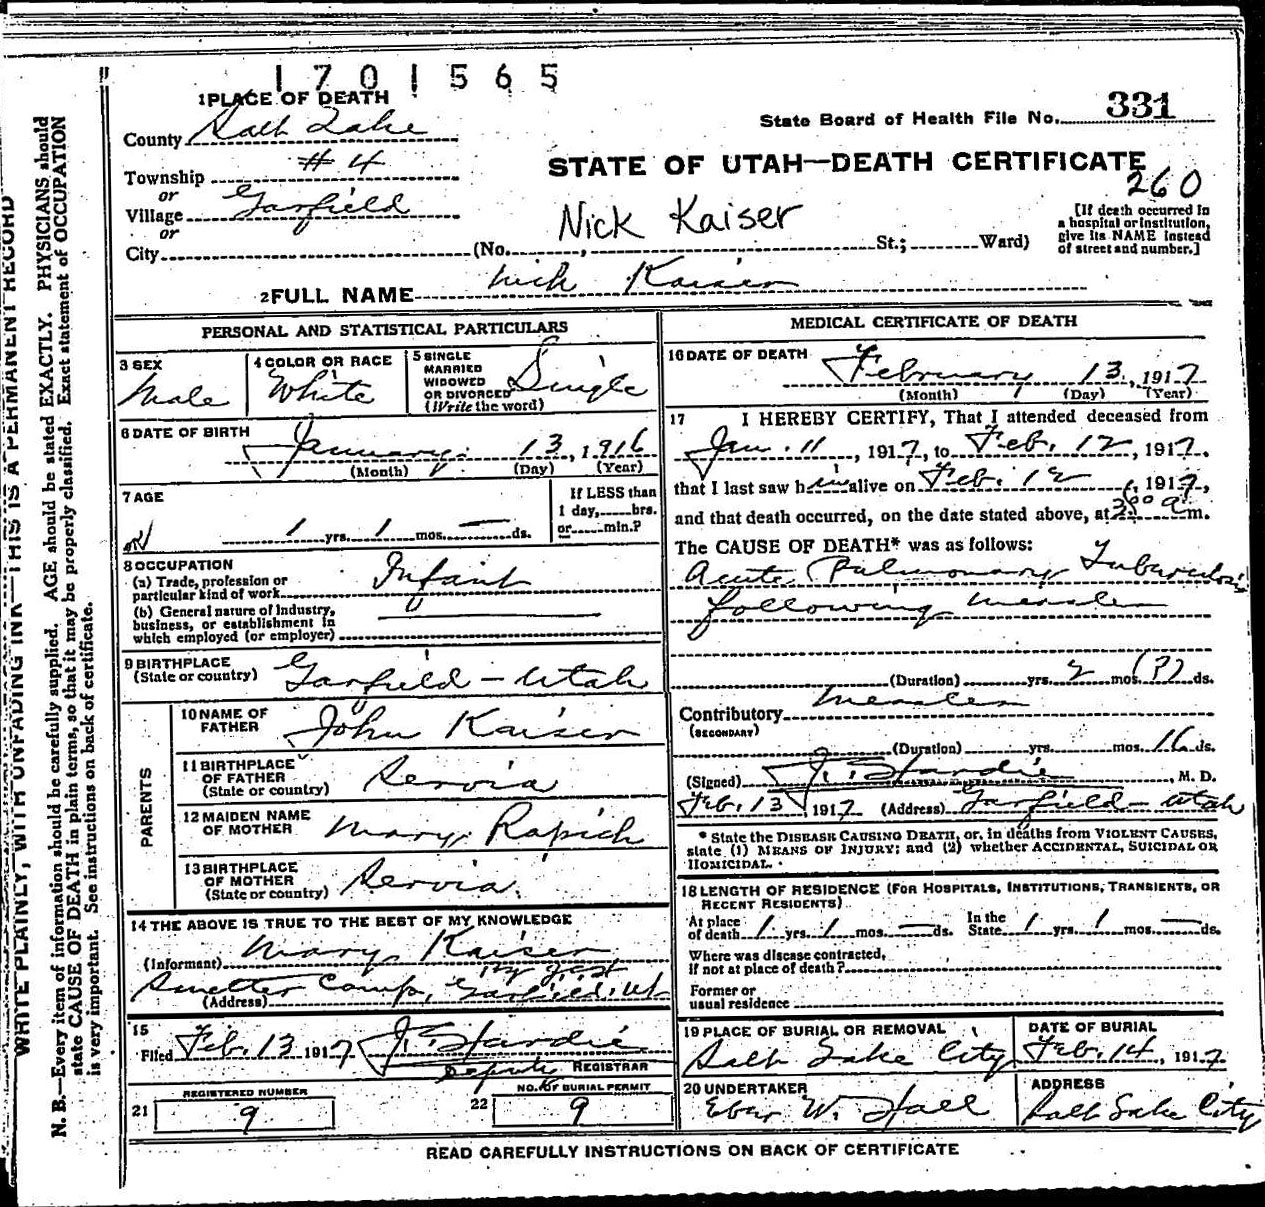 1701565
1 PLACE OF DEATH
State Board of Health File No. 331
County Salt Lake
Township #4
STATE OF UTAH—DEATH CERTIFICATE
260
or
Village Garfield
or
City
Nick Kaiser
(No. , St.; Ward)
[If death occurred in
a hospital or institution,
give its NAME instead
of street and number.]
2 FULL NAME Nick Kaiser
PERSONAL AND STATISTICAL PARTICULARS
3 SEX
Male
4 COLOR OR RACE
White
5 SINGLE
MARRIED
WIDOWED
OR DIVORCED
(Write the word)
Single
6 DATE OF BIRTH
January 13, 1916
(Month) (Day) (Year)
7 AGE
1 yrs. 1 mos. — ds.
If LESS than
1 day, hrs.
or min.?
8 OCCUPATION
(a) Trade, profession or
particular kind of work Infant
(b) General nature of Industry,
business, or establishment in
which employed (or employer)
9 BIRTHPLACE
(State or country) Garfield - Utah
PARENTS
10 NAME OF
FATHER John Kaiser
11 BIRTHPLACE
OF FATHER
(State or country) Servia
12 MAIDEN NAME
OF MOTHER Mary Rapich
13 BIRTHPLACE
OF MOTHER
(State or country) Servia
14 THE ABOVE IS TRUE TO THE BEST OF MY KNOWLEDGE
(Informant) Mary Kaiser
Smelter Camp, Garfield, Ut
(Address)
15
Filed Feb. 13 1917 J. Hardie
Deputy REGISTRAR
REGISTERED NUMBER
21 9
NO. OF BURIAL PERMIT
22 9
MEDICAL CERTIFICATE OF DEATH
16 DATE OF DEATH
February 13, 1917
(Month) (Day) (Year)
17 I HEREBY CERTIFY, That I attended deceased from
Jan. 11, 1917, to Feb. 12, 1917.
that I last saw him alive on Feb. 12, 1917,
and that death occurred, on the date stated above, at 3 00 a m.
The CAUSE OF DEATH* was as follows:
Acute Pulmonary Tuberculosis
following measles
(Duration) yrs. 2 mos. (?) ds.
Contributory Measles
(SECONDARY)
(Duration) yrs. mos. 16 ds.
(Signed) J. Hardie, M. D.
Feb. 13 1917 (Address) Garfield - Utah
* State the DISEASE CAUSING DEATH, or, in deaths from VIOLENT CAUSES,
state (1) MEANS OF INJURY; and (2) whether ACCIDENTAL, SUICIDAL OR
HOMICIDAL.
18 LENGTH OF RESIDENCE (FOR HOSPITALS, INSTITUTIONS, TRANSIENTS, OR
RECENT RESIDENTS)
At place
of death 1 yrs. 1 mos. — ds.
In the
State 1 yrs. 1 mos. — ds.
Where was disease contracted,
if not at place of death?
Former or
usual residence
19 PLACE OF BURIAL OR REMOVAL
Salt Lake City
DATE OF BURIAL
Feb. 14, 1917
20 UNDERTAKER
Eber W. Hall
ADDRESS
Salt Lake City
READ CAREFULLY INSTRUCTIONS ON BACK OF CERTIFICATE
WRITE PLAINLY, WITH UNFADING INK—THIS IS A PERMANENT RECORD
N. B.—Every item of information should be carefully supplied. AGE should be stated EXACTLY. PHYSICIANS should
state CAUSE OF DEATH in plain terms, so that it may be properly classified. Exact statement of OCCUPATION
is very important. See instructions on back of certificate.